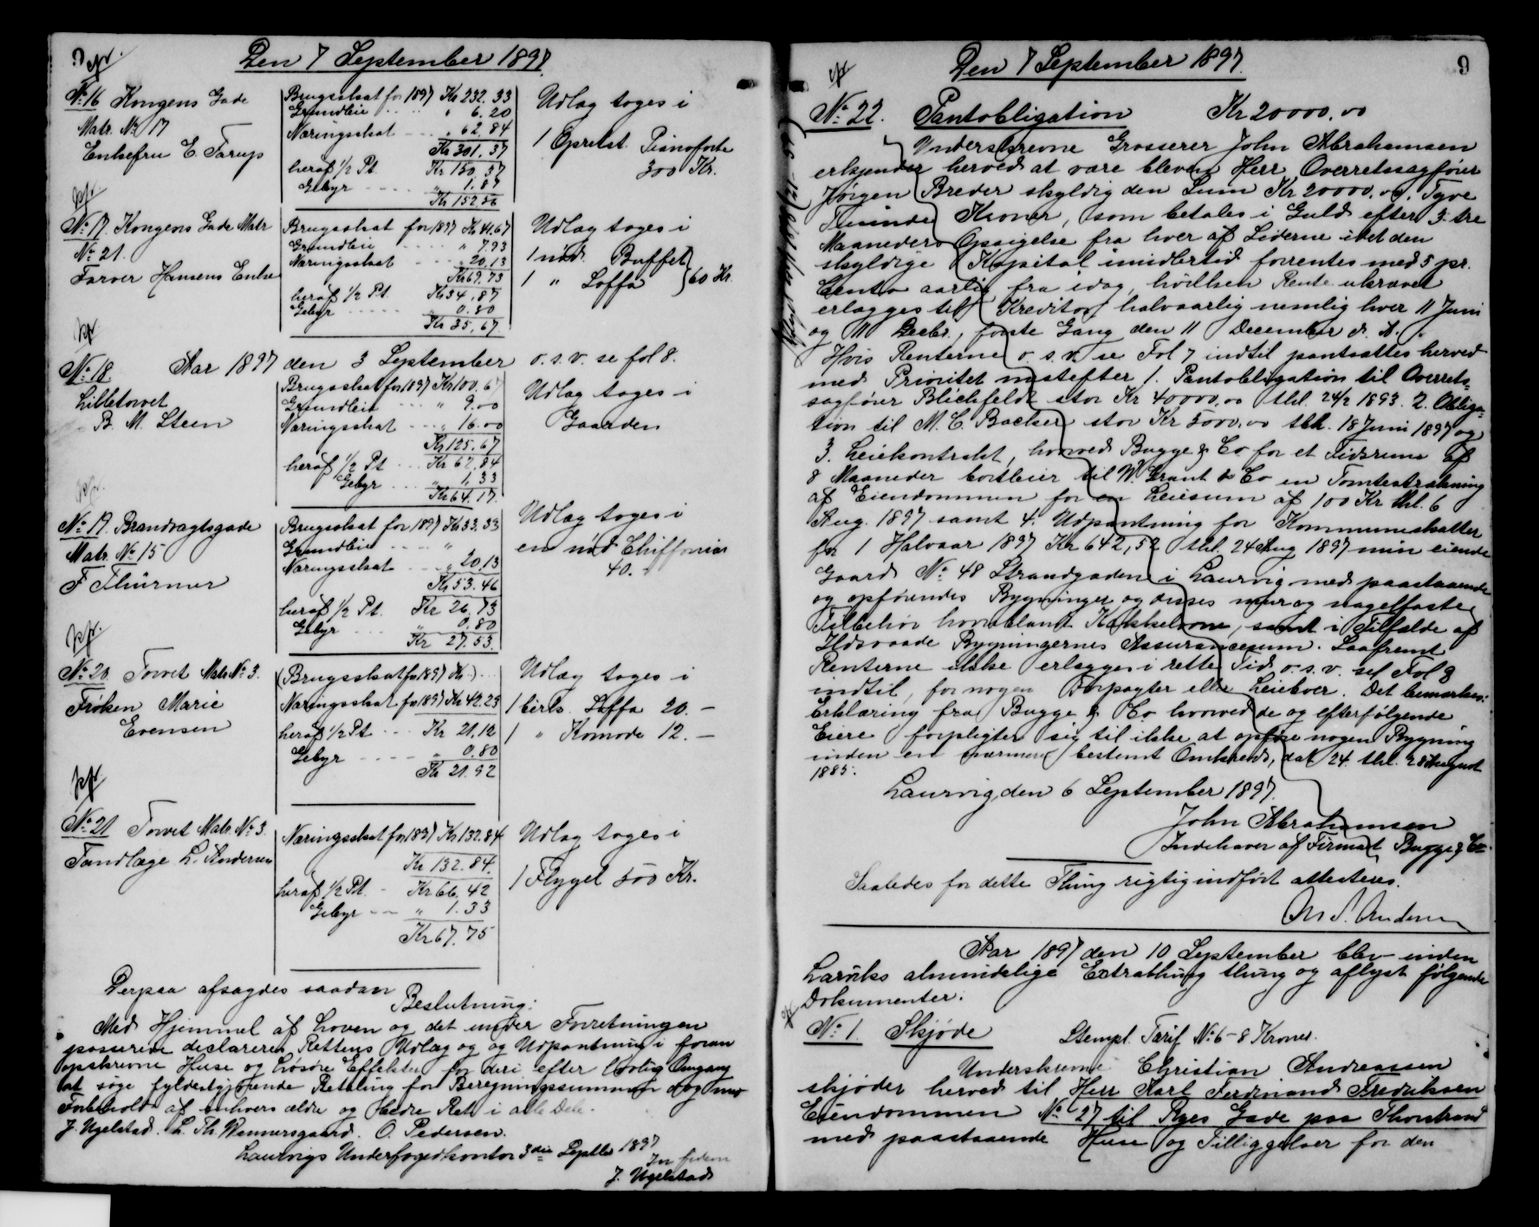 Den 7 September 1897
No 16 Kongens Gade
Matr. No 17
Enkefru E. Tarup
Brugsskat for 1897 Kr 232.33
Grundleie " 6.20
Næringsskat " 62.84
Kr 301.37
heraf 1/2 Pt. Kr 150.37
Gebyr " 1.87
Kr 152.56
Udlag toges i
1 Opretst. Pianoforte
300 Kr.
No 17. Kongens Gade Matr.
No 21.
Farver Hansens Enke
Brugsskat for 1897 Kr 41.67
Grundleie " 7.93
Næringsskat " 20.13
Kr 69.73
heraf 1/2 Pt. Kr 34.87
Gebyr 0.80
Kr 35.67
Udlag toges i
1 nød. Buffet
1 " Soffa } 60 Kr.
No 18. Aar 1897 den 3 September o.s.v. se fol 8.
Lilletorvet
B. M. Steen
Brugsskat for 1897 Kr 100.67
Grundleie " 9.00
Næringsskat " 16.00
Kr 125.67
heraf 1/2 Pt. Kr 62.84
Gebyr " 1.33
Kr 64.17
Udlag toges i
Gaarden
No 19. Brandvagtsgade
Matr. No 15
F. Thürmer
Brugsskat for 1897 Kr 33.33
Grundleie "
Næringsskat " 20.13
Kr 53.46
heraf 1/2 Pt. Kr 26.73
Gebyr " 0.80
Kr 27.53
Udlag toges i
en nød Chiffonier
40.-
No 20 Torvet Matr No 3.
Frøken Marie
Evensen
(Brugsskat for 1897 Kr )
Næringsskat for 1897 Kr 42.23
heraf 1/2 Pt Kr 21.12
Gebyr " 0.80
Kr 21.92
Udlag toges i
1 birk. Soffa 20.-
1 " Komode 12.-
No 21 Torvet Matr No 3.
Tandlæge L. Andersen
Næringsskat for 1897 Kr 132.84
Kr 132.84
heraf 1/2 Pt - Kr 66,42
Gebyr " 1.33
Kr 67.75
Udlag toges i
1 Flygel 500 Kr.
Derpaa afsagdes saadan
Beslutning:
Med Hjemmel af Loven og det under Forretningen
passerede declarerer Rettens Udlæg og og Udpantning i foran
opskrevne Huse og Løsøre Effekter for deri efter lovlig Omgang
at søge fyldestgjørende Betaling for Beregningssummen dog med
Forbehold af enhvers ældre og bedre Ret i alle Dele.
J. Ugelstad. L. Th. Wannersgaard. O. Pedersen.
Laurvigs Underfogedkontor 3die Septbr 1897
In fidem
J. Ugelstad
Den 7 September 1897.
9
No 22. Pantobligation Kr 20000.00
Underskrevne Grosserer John Abrahamsen
erkjender herved at være bleven Herr Overretssagfører
Jørgen Breder skyldig den Sum Kr 20000.00. Tyve
Tusinde Kroner, som betales i Guld efter 3 tre
Maaneders Opsigelse fra hver af Siderne idet den
skyldige Kapital imidlertid forrentes med 5 pr.
Cento aarlig fra idag, hvilken Rente ukrævet
erlægges til Kreditor halvaarlig nemlig hver 11 Juni
og 11 Decbr, første Gang den 11 December d. A.
Hvis Renterne o.s.v. se Fol 7 indtil pantsættes herved
med Prioritet næstefter 1. Pantobligation til Overrets-
sagfører Blichfeldt stor Kr 40000.00 thl. 24/2 1893. 2. Obliga-
tion til M. C. Backer stor Kr 5000.00 thl. 18 Juni 1897 og
3. Leiekontrakt, hvorved Bugge & Co for et Tidsrum af
8 Maaneder bortleier til W. Grant & Co en Tomtestrækning
af Eiendommen for en Leiesum af 100 Kr thl. 6
Aug. 1897 samt 4. Udpantning for Kommuneskatter
for 1 Halvaar 1897 Kr 642,52 thl. 24 Aug 1897 min eiende
Gaard No 48 Strandgaden i Laurvig med paastaaende
og opførendes Bygninger og disses mur og nagelfaste
Tilbehør hvoriblandt Kakkelovne, samt i Tilfælde af
Ildsvaade Bygningernes Assurancesum. Saafremt
Renterne ikke erlægges i rette Tid o.s.v. se Fol 8
indtil, for nogen Forpagter eller Leieboer. Det bemærkes:
Erklæring fra Bugge & Co hvorved de og efterfølgende
Eiere forpligter sig til ikke at opføre nogen Bygning
inden en nærmere bestemt Omkreds, dat 24. thl. 28 August
1885.
Laurvig den 6 September 1897.
John Abrahamsen
Indehaver af Firmat Bugge & Co
Saaledes for dette Thing rigtig indført attesteres.
Aar 1897 den 10 September blev inden
Larviks almindelige Extrathing thing og aflyst følgende
Dokumenter.
No 1. Skjøde Stempl. Tarif No 6 - 8 Kroner.
Underskrevne Christian Andreassen
skjøder herved til Herr Karl Ferdinand Fredriksen
Eiendommen No 27 til Ryes Gade paa Thorstrand
med paastaaende Huse og Tilliggelser for den